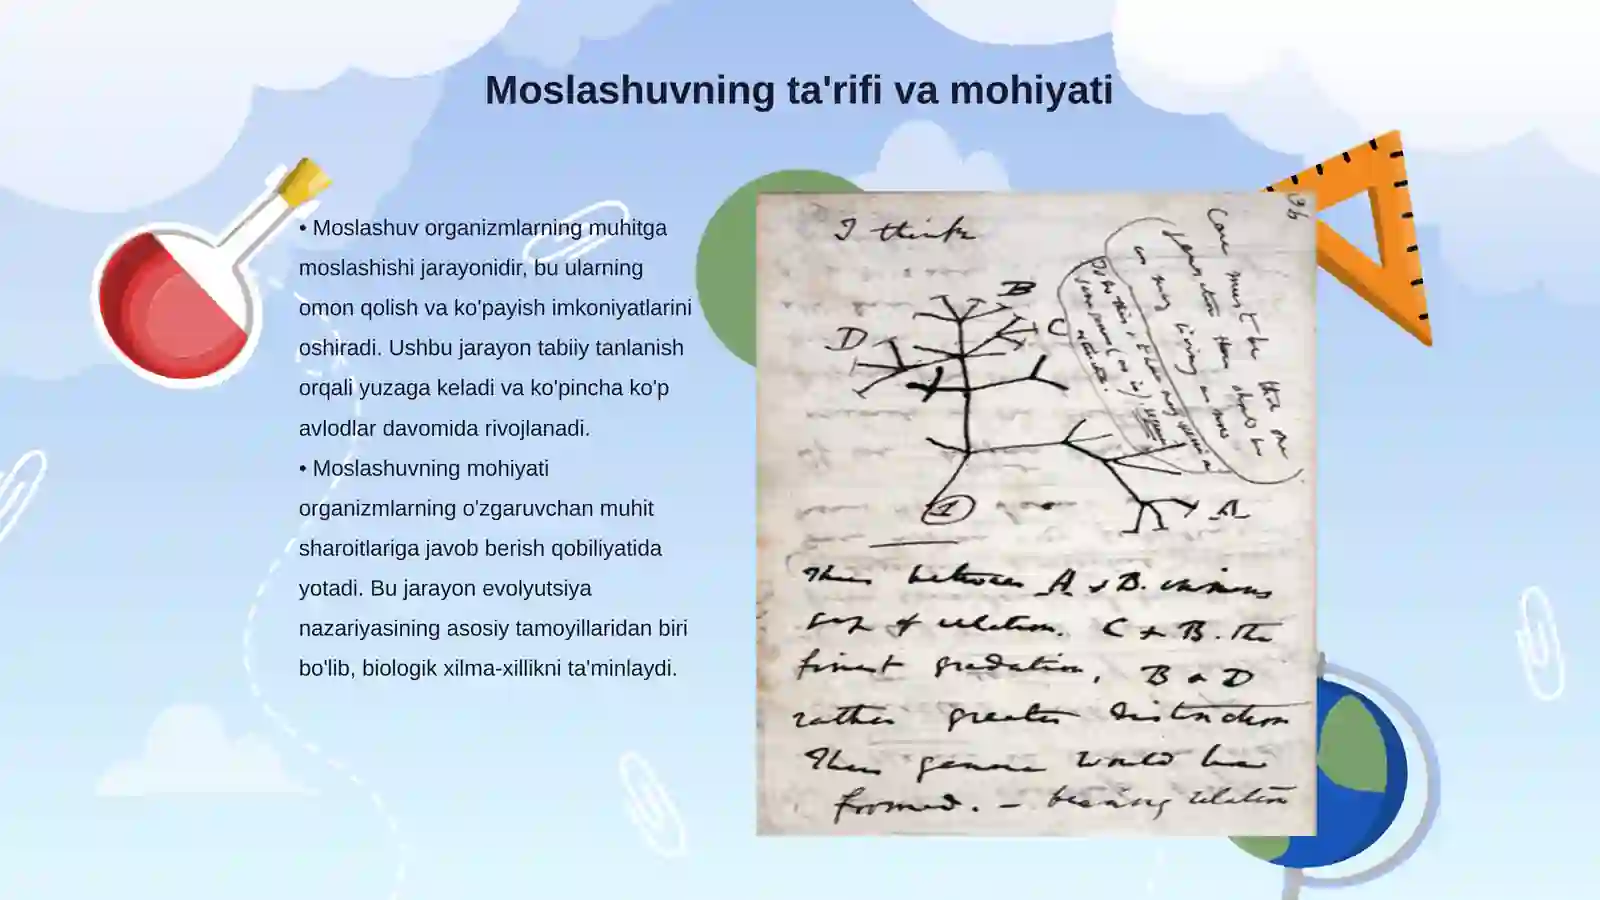 Moslashuvning ta'rifi va mohiyati
• Moslashuv organizmlarning muhitga
moslashishi jarayonidir, bu ularning
omon qolish va ko'payish imkoniyatlarini
oshiradi. Ushbu jarayon tabiiy tanlanish
orqali yuzaga keladi va ko'pincha ko'p
avlodlar davomida rivojlanadi.
• Moslashuvning mohiyati
organizmlarning o'zgaruvchan muhit
sharoitlariga javob berish qobiliyatida
yotadi. Bu jarayon evolyutsiya
nazariyasining asosiy tamoyillaridan biri
bo'lib, biologik xilma-xillikni ta'minlaydi.
36
I think
B
C
D
A
1
Case must be that one
generation then should be
as many living as now
Thus between A & B. immens
gap of relation. C & B. the
finest gradation, B & D
rather greater distinction
Thus genera would be
formed. — bearing relation